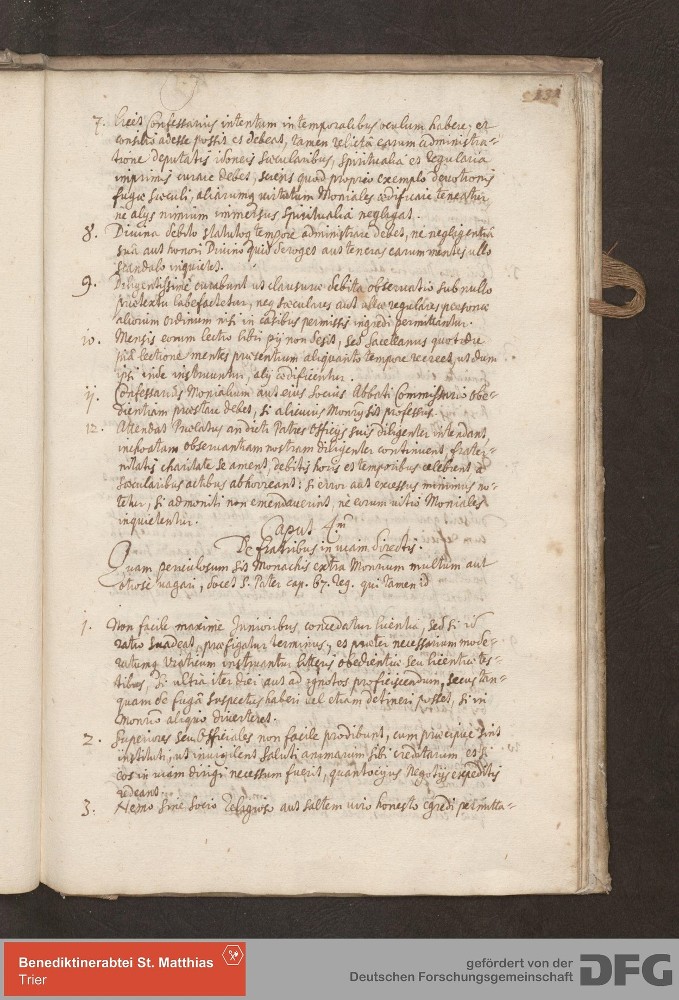 131
7. Licet Confessarius intentum in temporalibus oculum habere, et
consilio adesse possit et debeat, tamen relictâ earum administra=
tione deputatis idoneis sæcularibus, spiritualia et regularia
imprimis curare debet, sciens quod proprio exemplo devotionis
fugæ sæculi, aliarumq virtutum Moniales ædificare teneatur,
ne alys nimium immersus spiritualia negligat.
8. Divina debito statutoq tempore administrare debet, ne negligentiâ
suâ aut honori Divino quid deroget aut teneras earum mentes ullo
scandalo inquietet.
9. Diligentissime curabunt ut clausuræ debita observatio sub nullo
prætextu labefactetur, neq sæculares aut aliæ regulares personæ
aliorum ordinum nisi in casibus permissis ingredi permittantur.
10. Mensis eorum lectio libri pij non desit, sed sacellanus quotidie
piâ lectione mentes præsentium aliquanto tempore recreet, ut dum
ipsi inde instruuntur, alij ædificentur.
ij. Confessarius Monialium aut eius socius Abbati Commissario obe=
dientiam præstare debet, si alicuius Monry sit professus.
12. Attendat Prælatus an dicti Patres officijs suis diligenter intendant,
inchoatam observantiam nostram diligenter continuent, frater=
nitatis charitate se ament, debitis horis et temporibus celebrent à
sæcularibus actibus abhorreant: si error aut excessus minimus no=
tetur, si admoniti non emendaverint, ne eorum vitio Moniales
inquietentur.
Caput 4m
De fratribus in viam directis.
Quam periculosum sit Monachis extra Monrium multum aut
otiosè vagari, docet S. Pater cap. 67. reg. qui tamen id
1. Non facile maxime Junioribus concedatur licentia, sed si id
ratio suadeat, præfigatur terminus, et præter necessarium mode=
ratumq viaticum instruantur litteris obedientiæ seu licentiæ tes=
tibus, si ultra iter diei aut ad ignotos proficiscendum, secus tan=
quam de fugâ suspectus haberi vel etiam detineri posset, si in
Monrio aliquo diverteret.
2. Superiores seu Officiales non facile prodibunt, cum præcipue sint
instituti, ut invigilent saluti animarum sibi creditarum et si
eos in viam dirigi necessum fuerit, quantocyus negotijs expeditis
redeant.
3. Nemo sine socio religioso aut saltem viro honesto egredi permitta=
Benediktinerabtei St. Matthias
Trier
gefördert von der
Deutschen Forschungsgemeinschaft
DFG